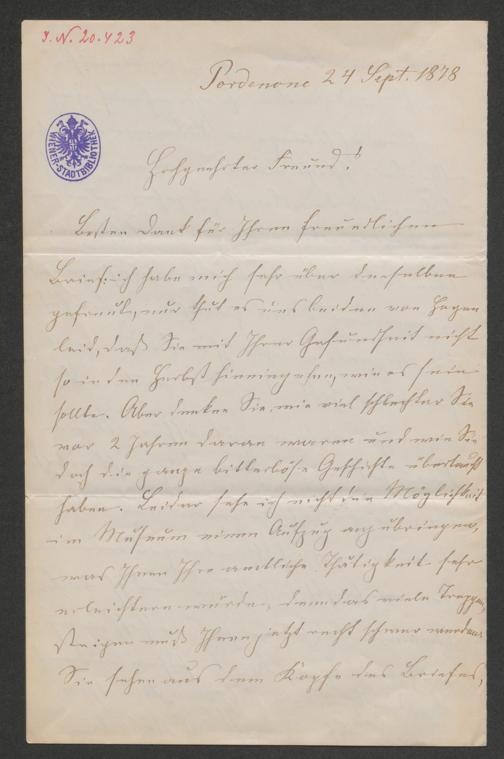 I. N. 20.423
Pordenone 24 Sept. 1878
WIENER-STADTBIBLIOTHEK
Hochgeehrter Freund!
Besten Dank für Ihren freundlichen
Brief; ich habe mich sehr über denselben
gefreut, nur thut es uns beiden von Herzen
leid, daß Sie mit Ihrer Gesundheit nicht
so in den Herbst hineingehen, wie es sein
sollte. Aber denken Sie, wie viel schlechter Sie
vor 2 Jahren daran waren und wie Sie
doch die ganze bitterböse Geschichte
haben. Leider sehe ich nicht die Möglichkeit
im Museum einen Aufzug anzubringen,
was Ihnen Ihre amtliche Thätigkeit sehr
erleichtern würde, denn das viele Treppen
steigen muß Ihnen jetzt recht schwer werden.
Sie sehen aus dem Kopfe des Briefes,